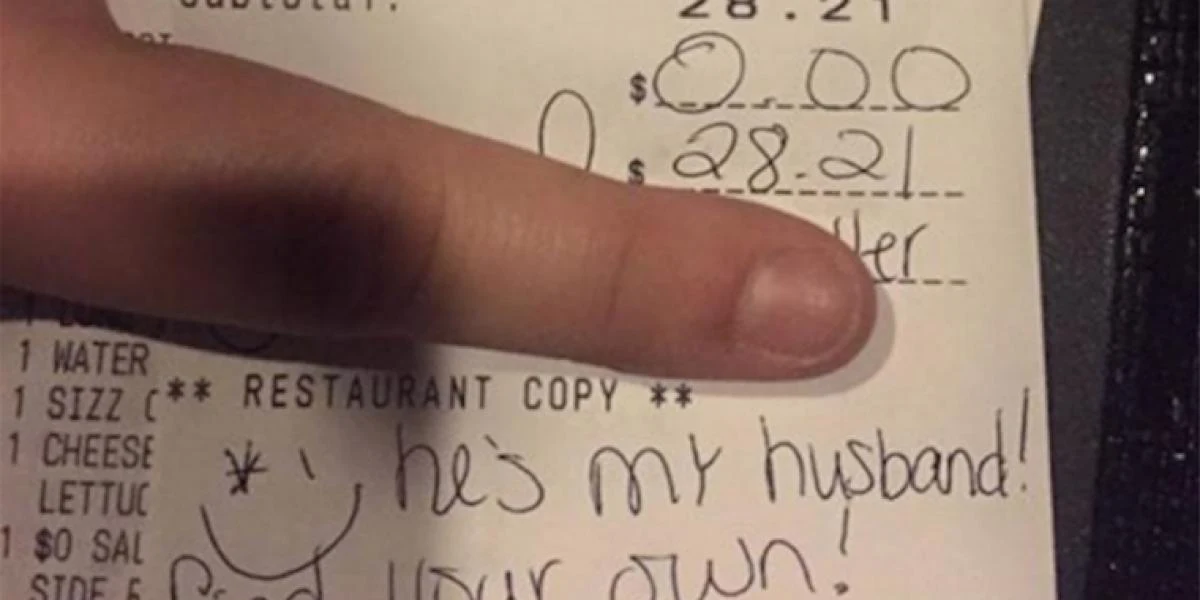 Subtotal: 28.21
$ 0.00
$ 28.21
1 WATER
** RESTAURANT COPY **
1 SIZZ
1 CHEESE
he's my husband!
LETTUC
1 $0 SAL
your own!
SIDE